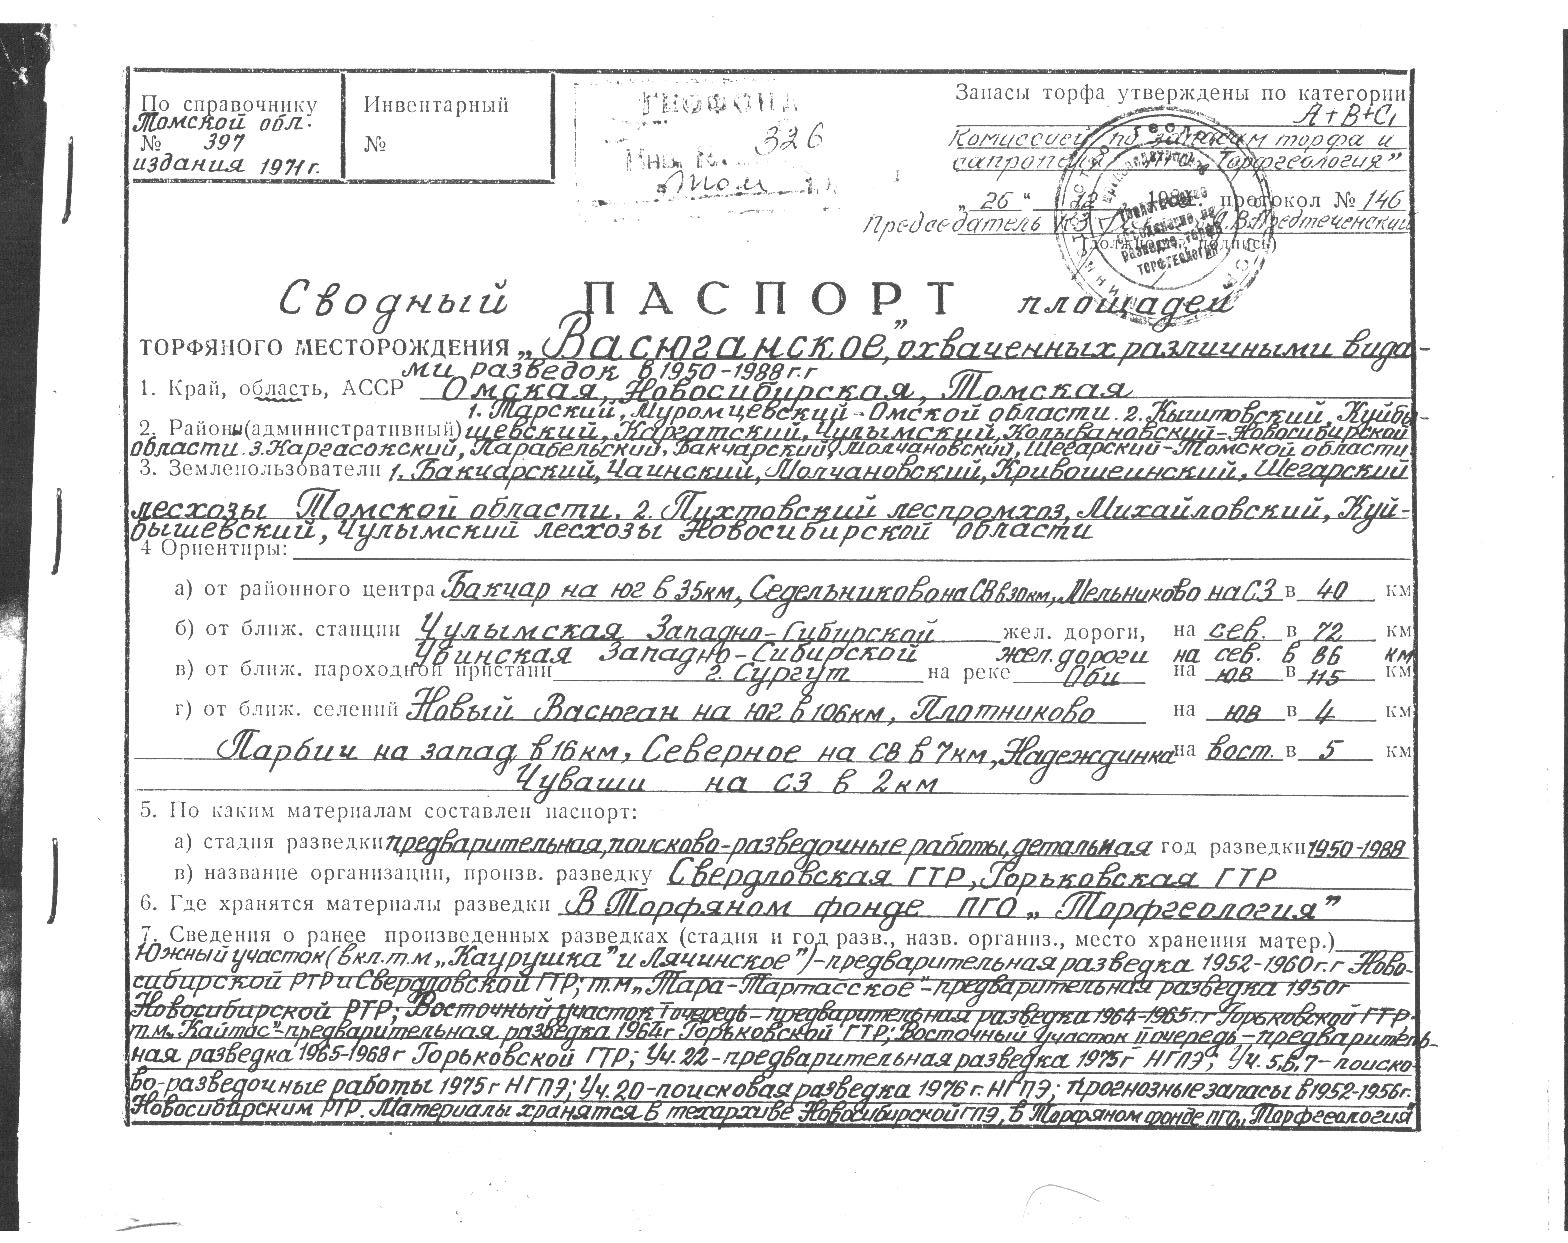 По справочнику
Томской обл.
№ 397
издания 1971 г.
Инвентарный
№
ГЕОФОНД
326
Инв. №
Том
Запасы торфа утверждены по категории
А+В+С₁
Комиссией по запасам торфа и
сапропеля Торфгеология"
„ 26 “ 12 протокол № 146
Председатель А.В.Предтеченский
(должность, подпись)
Сводный ПАСПОРТ площадей
ТОРФЯНОГО МЕСТОРОЖДЕНИЯ „Васюганское", охваченных различными вида-
ми разведок в 1950-1988г.г
1. Край, область, АССР Омская, Новосибирская, Томская
1. Тарский, Муромцевский - Омской области. 2. Кыштовский, Куйбы-
2. Районы (административный) шевский, Каргатский, Чулымский, Колывановский-Новосибирской
области 3. Каргасокский, Парабельский, Бакчарский, Молчановский, Шегарский-Томской области
3. Землепользователи 1. Бакчарский, Чаинский, Молчановский, Кривошеинский, Шегарский
лесхозы Томской области. 2. Пихтовский леспромхоз, Михайловский, Куй-
бышевский, Чулымский лесхозы Новосибирской области
4 Ориентиры:
а) от районного центра Бакчар на юг в 35км, Седельниково на СВ в 30км, Мельниково на СЗ в 40 км
б) от ближ. станции Чулымская Западно-Сибирской жел. дороги, на сев. в 72 км
Убинская Западно-Сибирской жел. дороги на сев. в 86 км
в) от ближ. пароходной пристани г. Сургут на реке Оби на юв в 115 км
г) от ближ. селений Новый Васюган на юг в 106км, Плотниково на юв в 4 км
Парбич на запад в 16км, Северное на СВ в 7км, Надеждинка на вост. в 5 км
Чуваши на СЗ в 2км
5. По каким материалам составлен паспорт:
а) стадия разведки предварительная, поисково-разведочные работы, детальная год разведки 1950-1988
в) название организации, произв. разведку Свердловская ГТР, Горьковская ГТР
6. Где хранятся материалы разведки В Торфяном фонде ПГО „Торфгеология"
7. Сведения о ранее произведенных разведках (стадия и год разв., назв. организ., место хранения матер.)
Южный участок (вкл. т.м „Каурушка" и Лячинское")-предварительная разведка 1952-1960г.г Ново-
сибирской РТР и Свердловской ГТР; т.м „Тара-Тартасское"-предварительная разведка 1950г
Новосибирской РТР; Восточный участок I очередь - предварительная разведка 1964-1965г.г Горьковской ГТР.
т.м. Кайтас"-предварительная разведка 1964г Горьковской ГТР; Восточный участок II очередь - предваритель-
ная разведка 1965-1968г Горьковской ГТР; Уч. 22-предварительная разведка 1975г НГПЭ; Уч. 5,6,7-поиско-
во-разведочные работы 1975г НГПЭ; Уч. 20-поисковая разведка 1976г. НГПЭ; Прогнозные запасы в 1952-1956г.
Новосибирским РТР. Материалы хранятся в техархиве Новосибирской ГПЭ, в Торфяном фонде ПГО „Торфгеология"